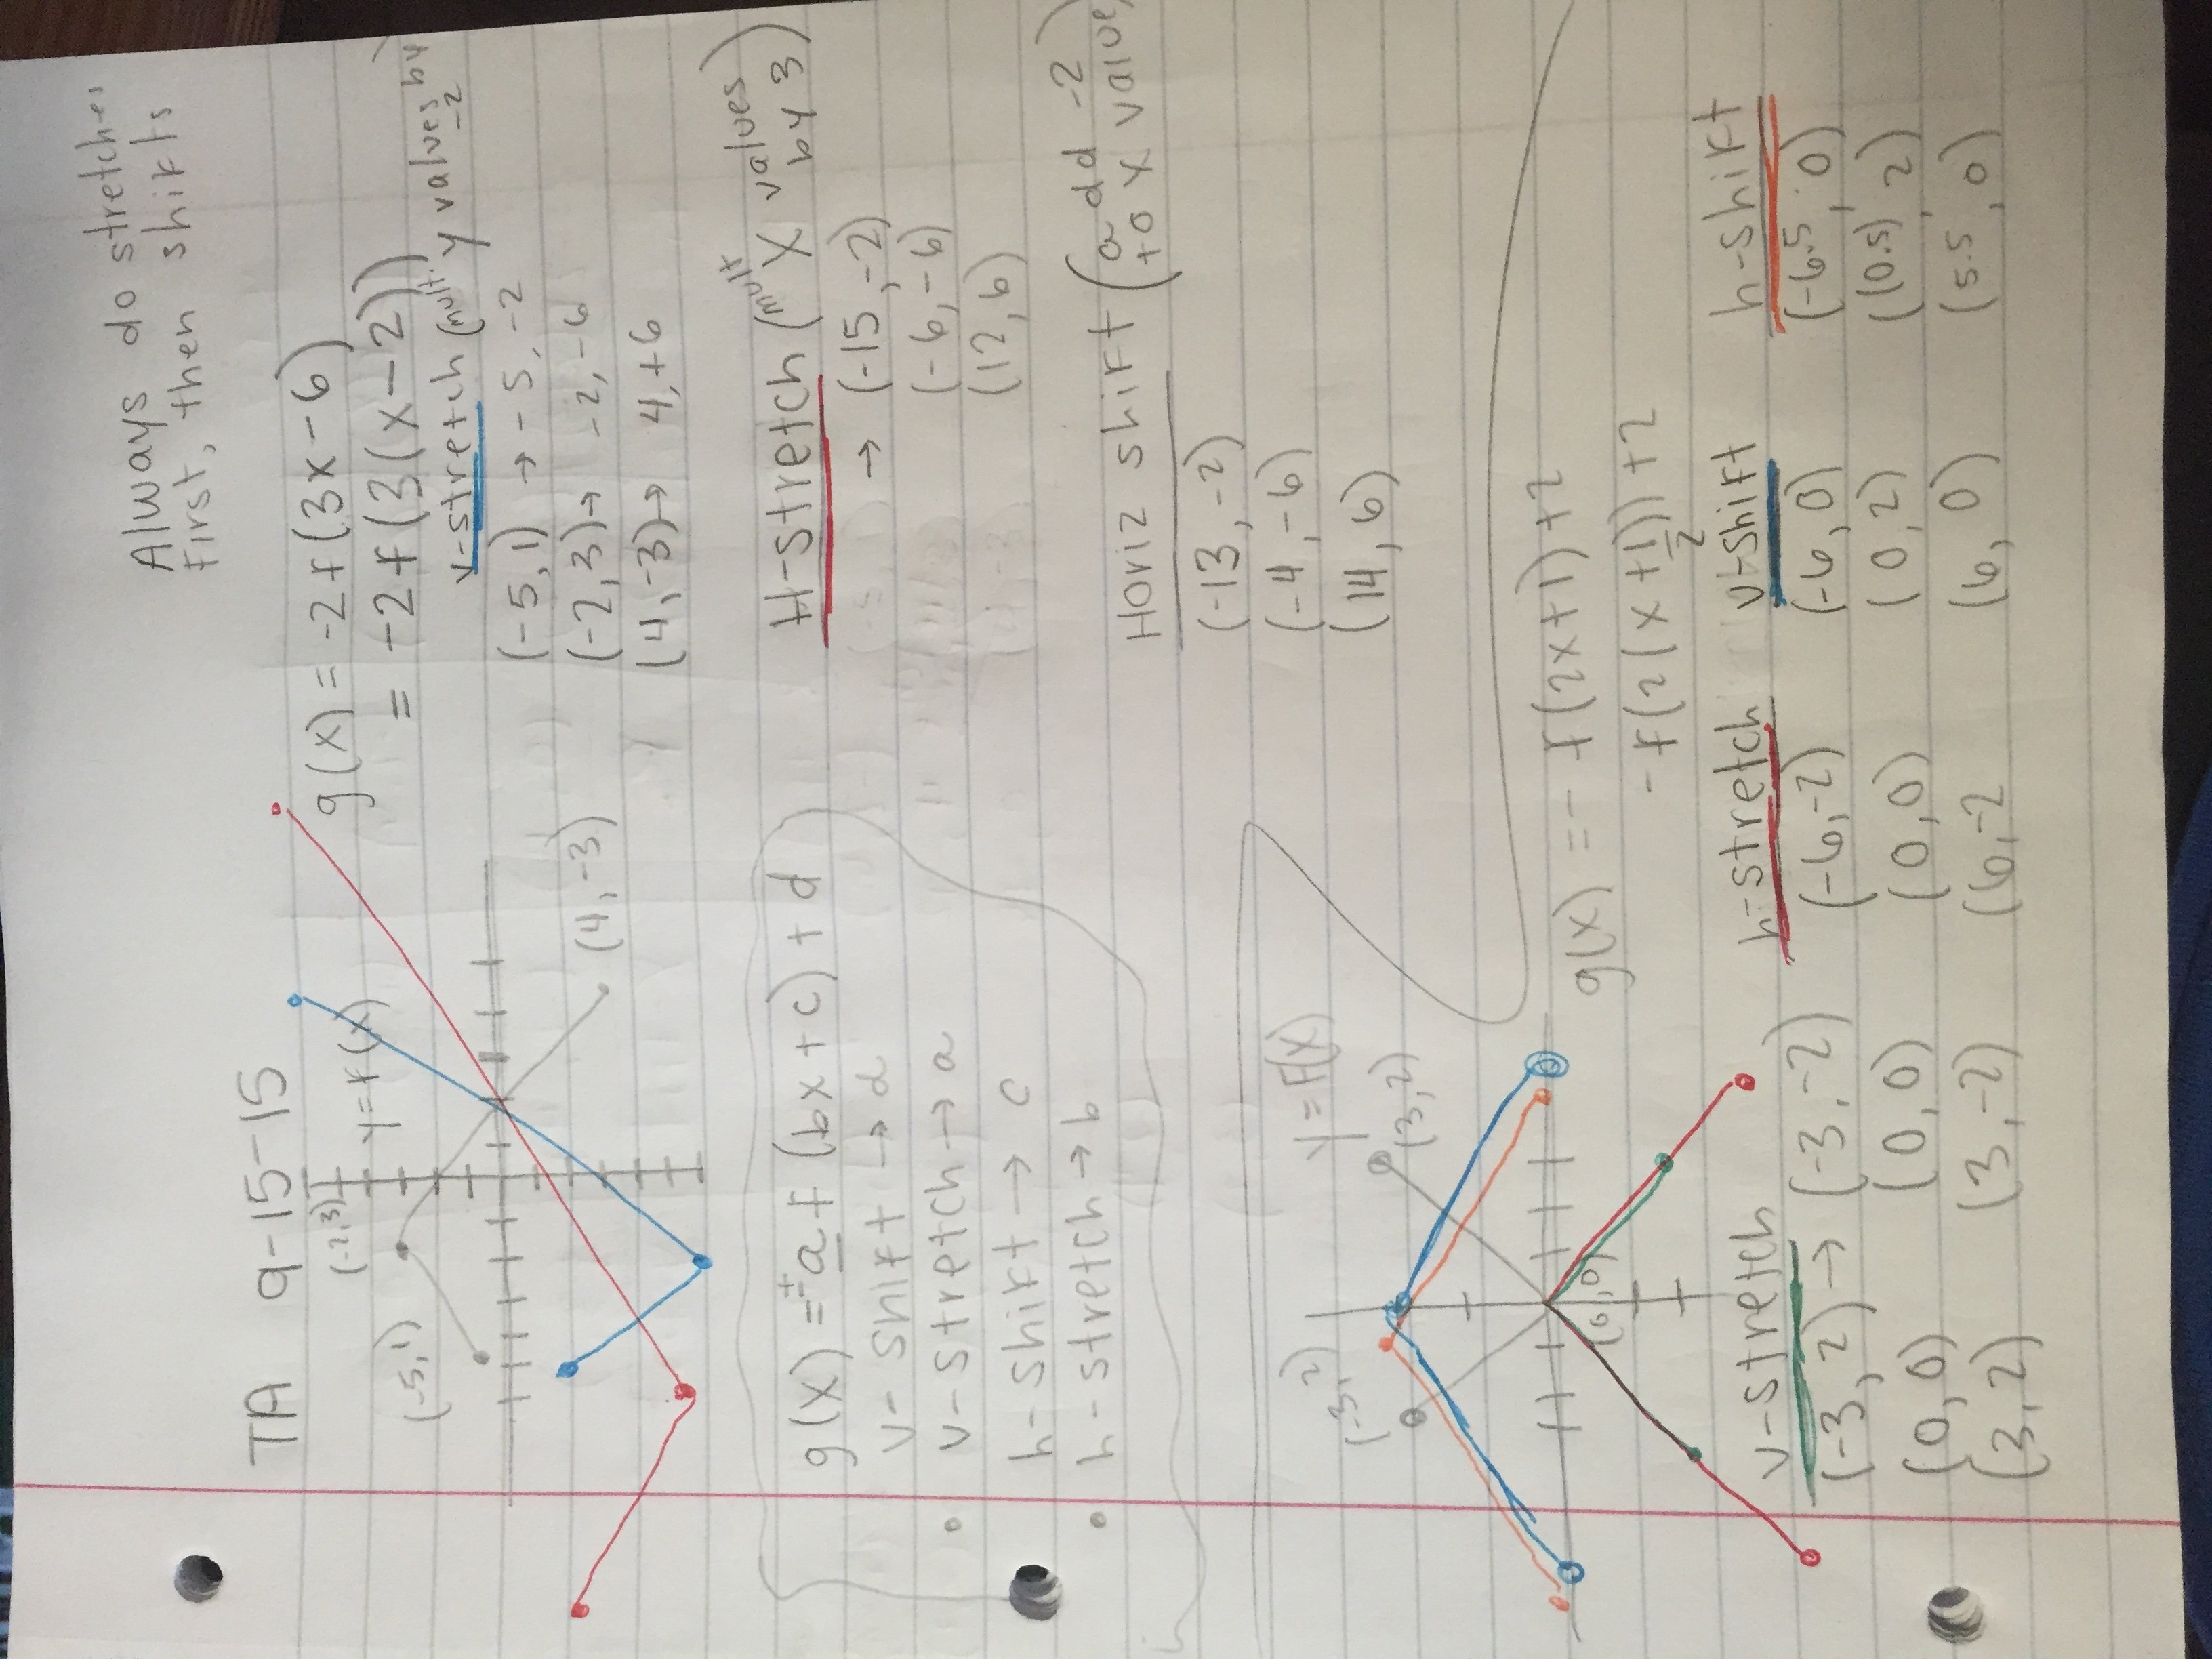 TA 9-15-15
Always do stretches
first, then shifts
(-2,3)
y=f(x)
(-5,1)
(4,-3)
g(x) = -2f(3x-6)
= -2f(3(x-2))
v-stretch (mult. y values by -2
(-5,1) → -5,-2
(-2,3)→ -2,-6
(4,-3)→ 4,+6
g(x) = ±af(bx+c)+d
v-shift → d
• v-stretch → a
h-shift → c
• h-stretch → b
H-stretch (mult x values by 3)
→ (-15,-2)
(-6,-6)
(12,6)
Horiz shift (add -2 to x value)
(-13,-2)
(-4,-6)
(14,6)
y=f(x)
(-3,2)
(3,2)
(0,0)
g(x) = -f(2x+1)+2
-f(2(x+1/2))+2
v-stretch h-stretch v-shift h-shift
(-3,2) → (-3,-2) (-6,-2) (-6,0) (-6.5,0)
(0,0) (0,0) (0,0) (0,2) (0.5,2)
(3,2) (3,-2) (6,-2 (6,0) (5.5,0)